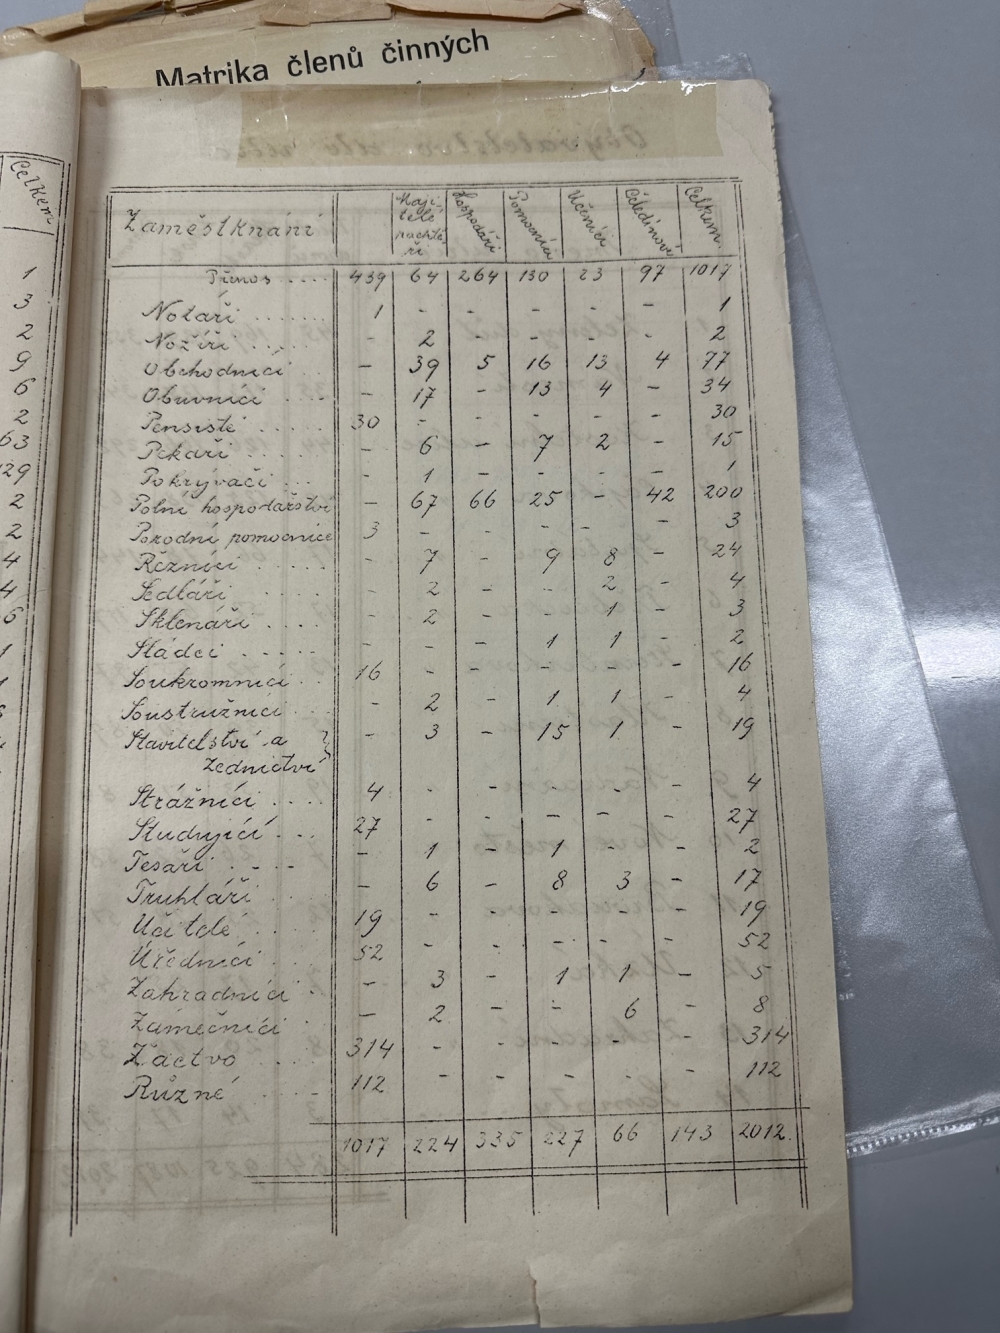 Matrika členů činných
Celkem
1
3
2
9
6
2
63
129
2
2
4
4
6
1
Zaměstknání Maji- telé pachtě- ři Hospodáři Pomocníci Učeníci Čeledínové Celkem.
Přenos .... 439 64 264 130 23 97 1017
Notáři ...... 1 - - - - - 1
Nožíři ..... - 2 - - - - 2
Obchodníci .. - 39 5 16 13 4 77
Obuvníci ... - 17 - 13 4 - 34
Pensisté .... 30 - - - - - 30
Pekaři .... - 6 - 7 2 - 15
Pokrývači ... - 1 - - - - 1
Polní hospodářství - 67 66 25 - 42 200
Porodní pomocnice 3 - - - - - 3
Řezníci ..... - 7 - 9 8 - 24
Sedláři .... - 2 - - 2 - 4
Sklenáři .... - 2 - - 1 - 3
Sládci ..... - - - 1 1 - 2
Soukromníci .. 16 - - - - - 16
Soustružníci .. - 2 - 1 1 - 4
Stavitelství a - 3 - 15 1 - 19
zednictví
Strážníci .... 4 - - - - - 4
Studující ... 27 - - - - - 27
Tesaři .... - 1 - 1 - - 2
Truhláři ... - 6 - 8 3 - 17
Učitelé .... 19 - - - - - 19
Úředníci ... 52 - - - - - 52
Zahradníci . - 3 - 1 1 - 5
Zámečníci . - 2 - - 6 - 8
Žáctvo .... 314 - - - - - 314
Různé .... 112 - - - - - 112
1017 224 335 227 66 143 2012.